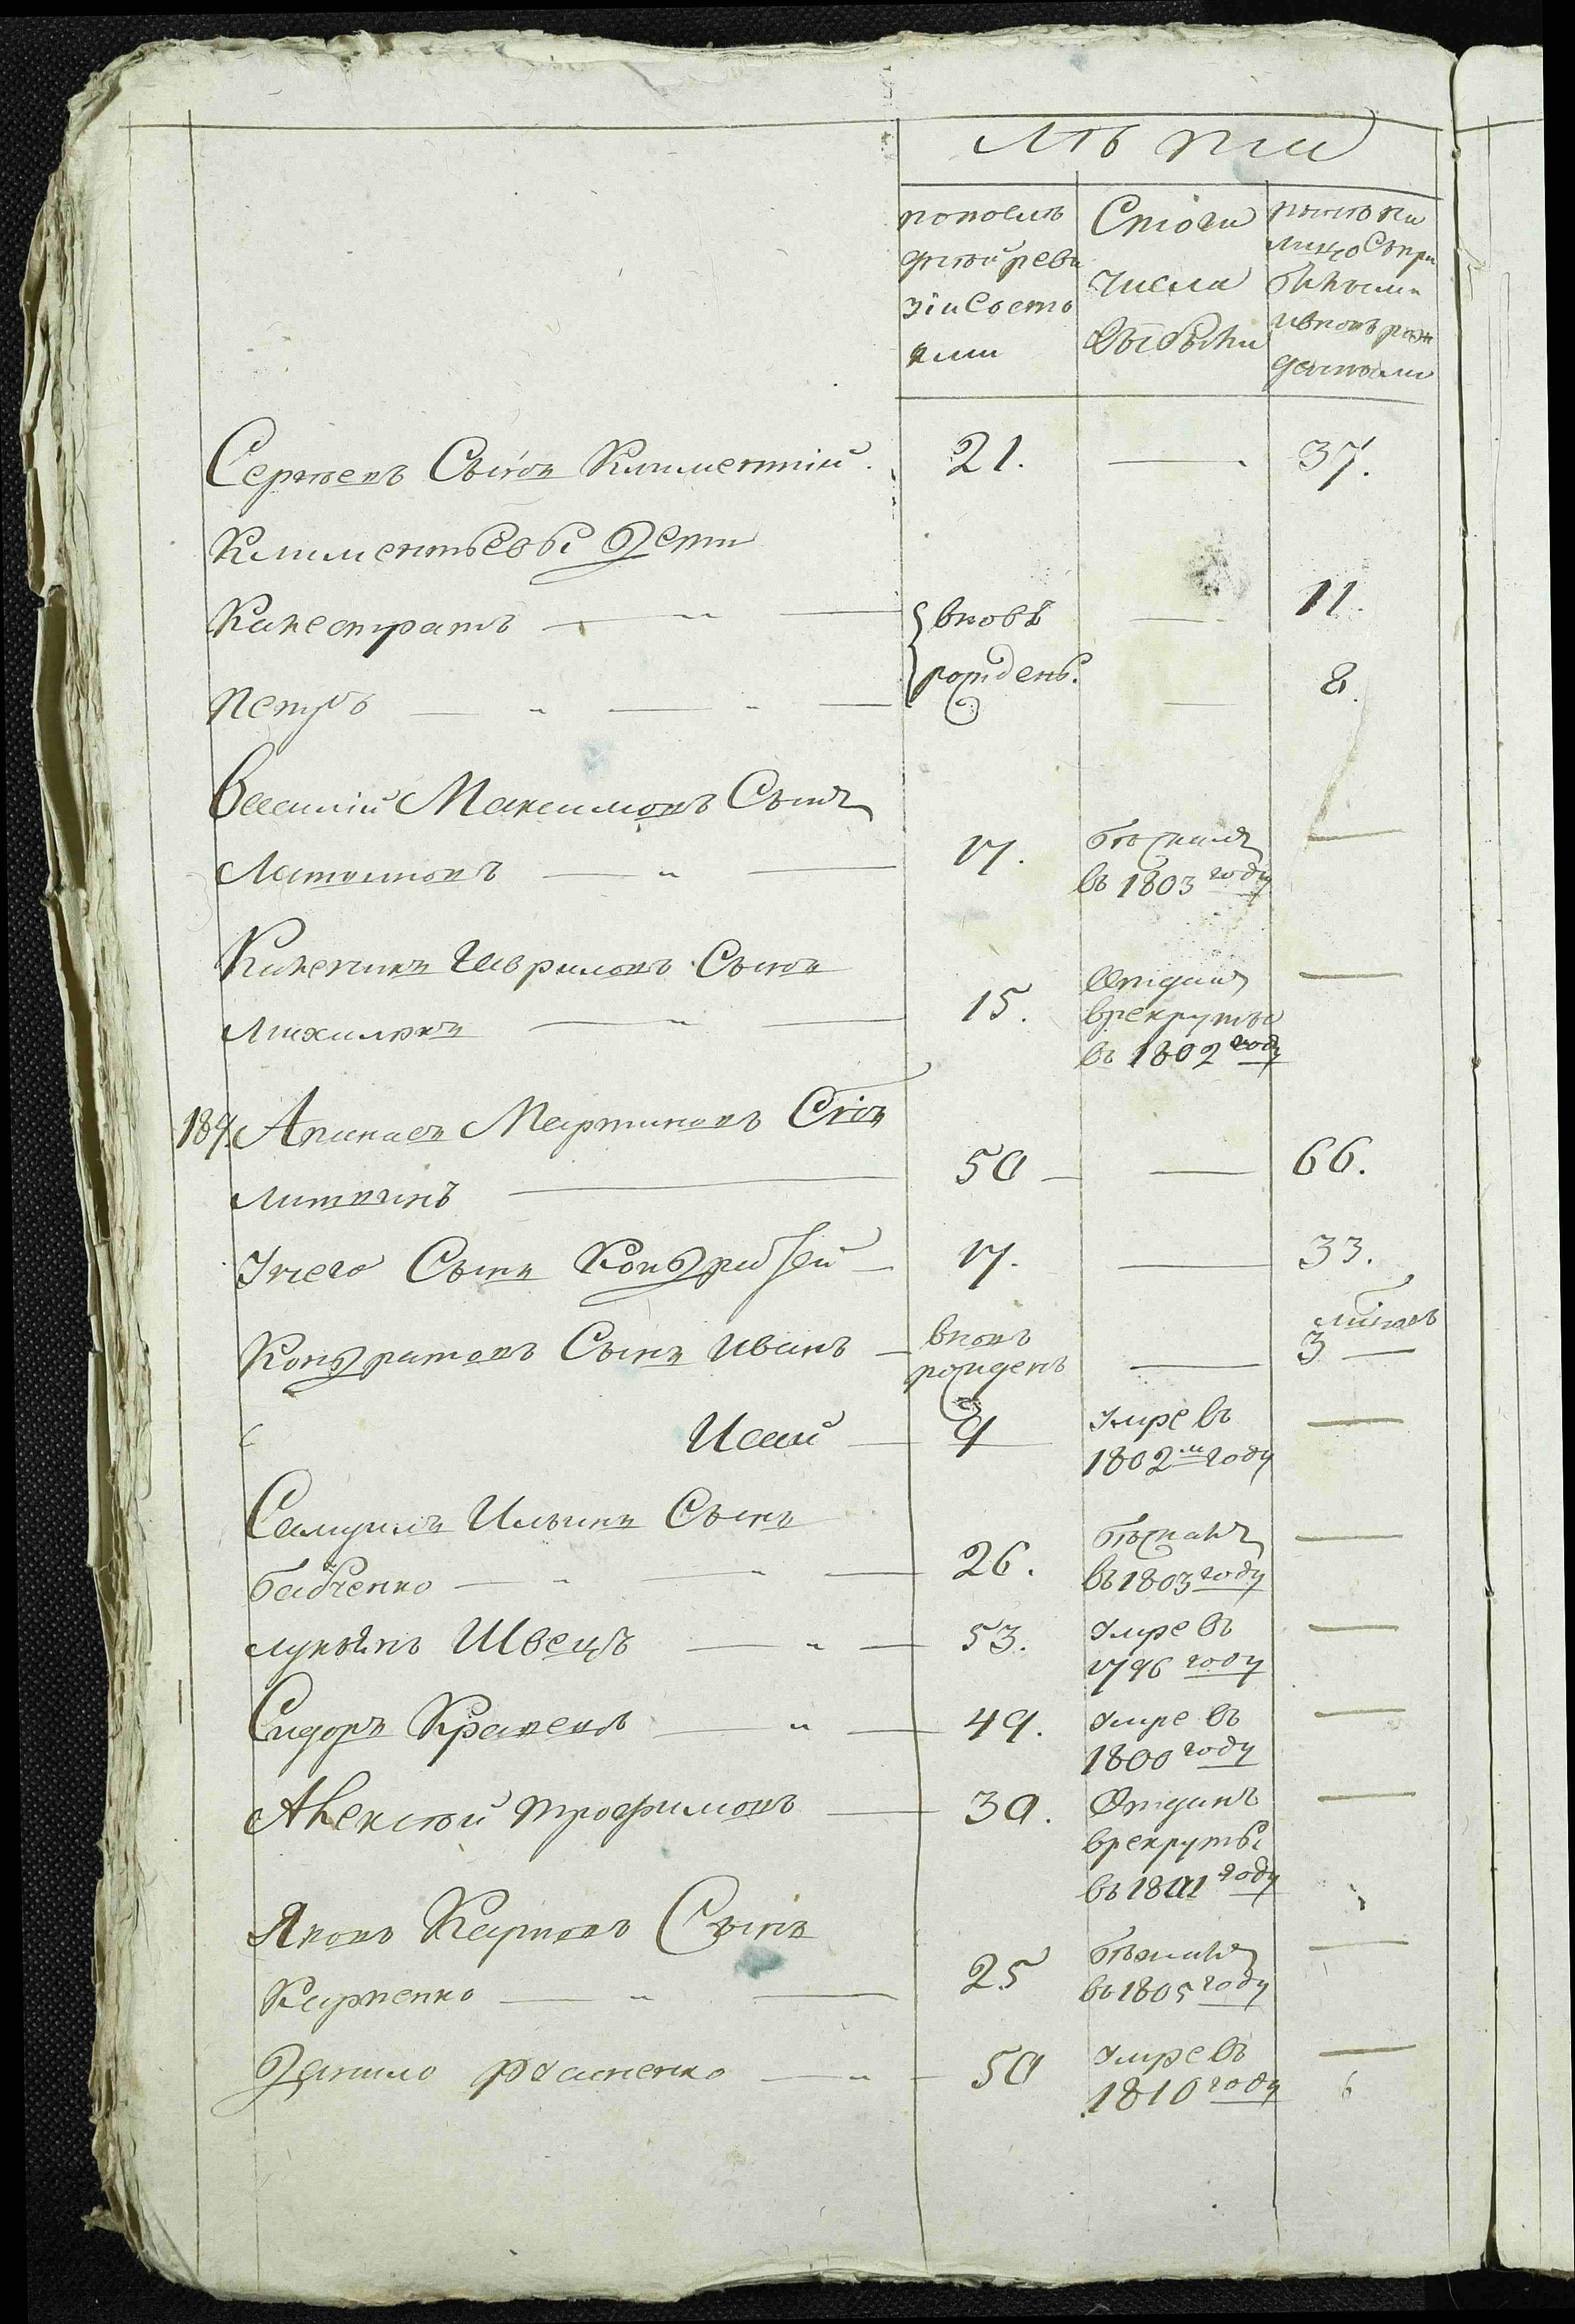 Лѣта
пополѣ
дней реви
зіи Состо
яли
Стого
числа
выбыли
нынѣ на
лицо Съпри
былыми
ивновь рож
денными
Сергеевъ Сынъ Климентий. 21. — 37.
Климентьевы Дети
Канестратъ — „ — вновь — 11.
Петръ — „ — „ — рожденъ. — 8.
Василий Максимовъ Сынъ
— „ — 17. бежалъ
въ 1803 году —
Гавриловъ Сынъ
Михилевъ — „ — 15. Отданъ
врекруты
въ 1802 году —
189. Апанасъ Мартиновъ Сынъ
Литвинъ — 50 — — 66.
Унего Сынъ Кондратей — 17. — 33.
Кондратовъ Сынъ иванъ — вновь
рожденъ — 3 —
Исай — 9 умре въ
1802м году —
Самуилъ Ильинъ Сынъ
бабченко — „ — „ — 26. бежалъ
въ 1803 году —
лукьянъ Швецъ — „ — 53. умре въ
1796 году —
Сидоръ Кравецъ — „ — 49. умре въ
1800 году —
Алексей трофимовъ — 30. Отданъ
врекруты
въ 1801 году —
Яковъ Карповъ Сынъ
Карпенко — „ — 25 бежалъ
въ 1805 году —
Данило — „ — 50 умре въ
1810 году —